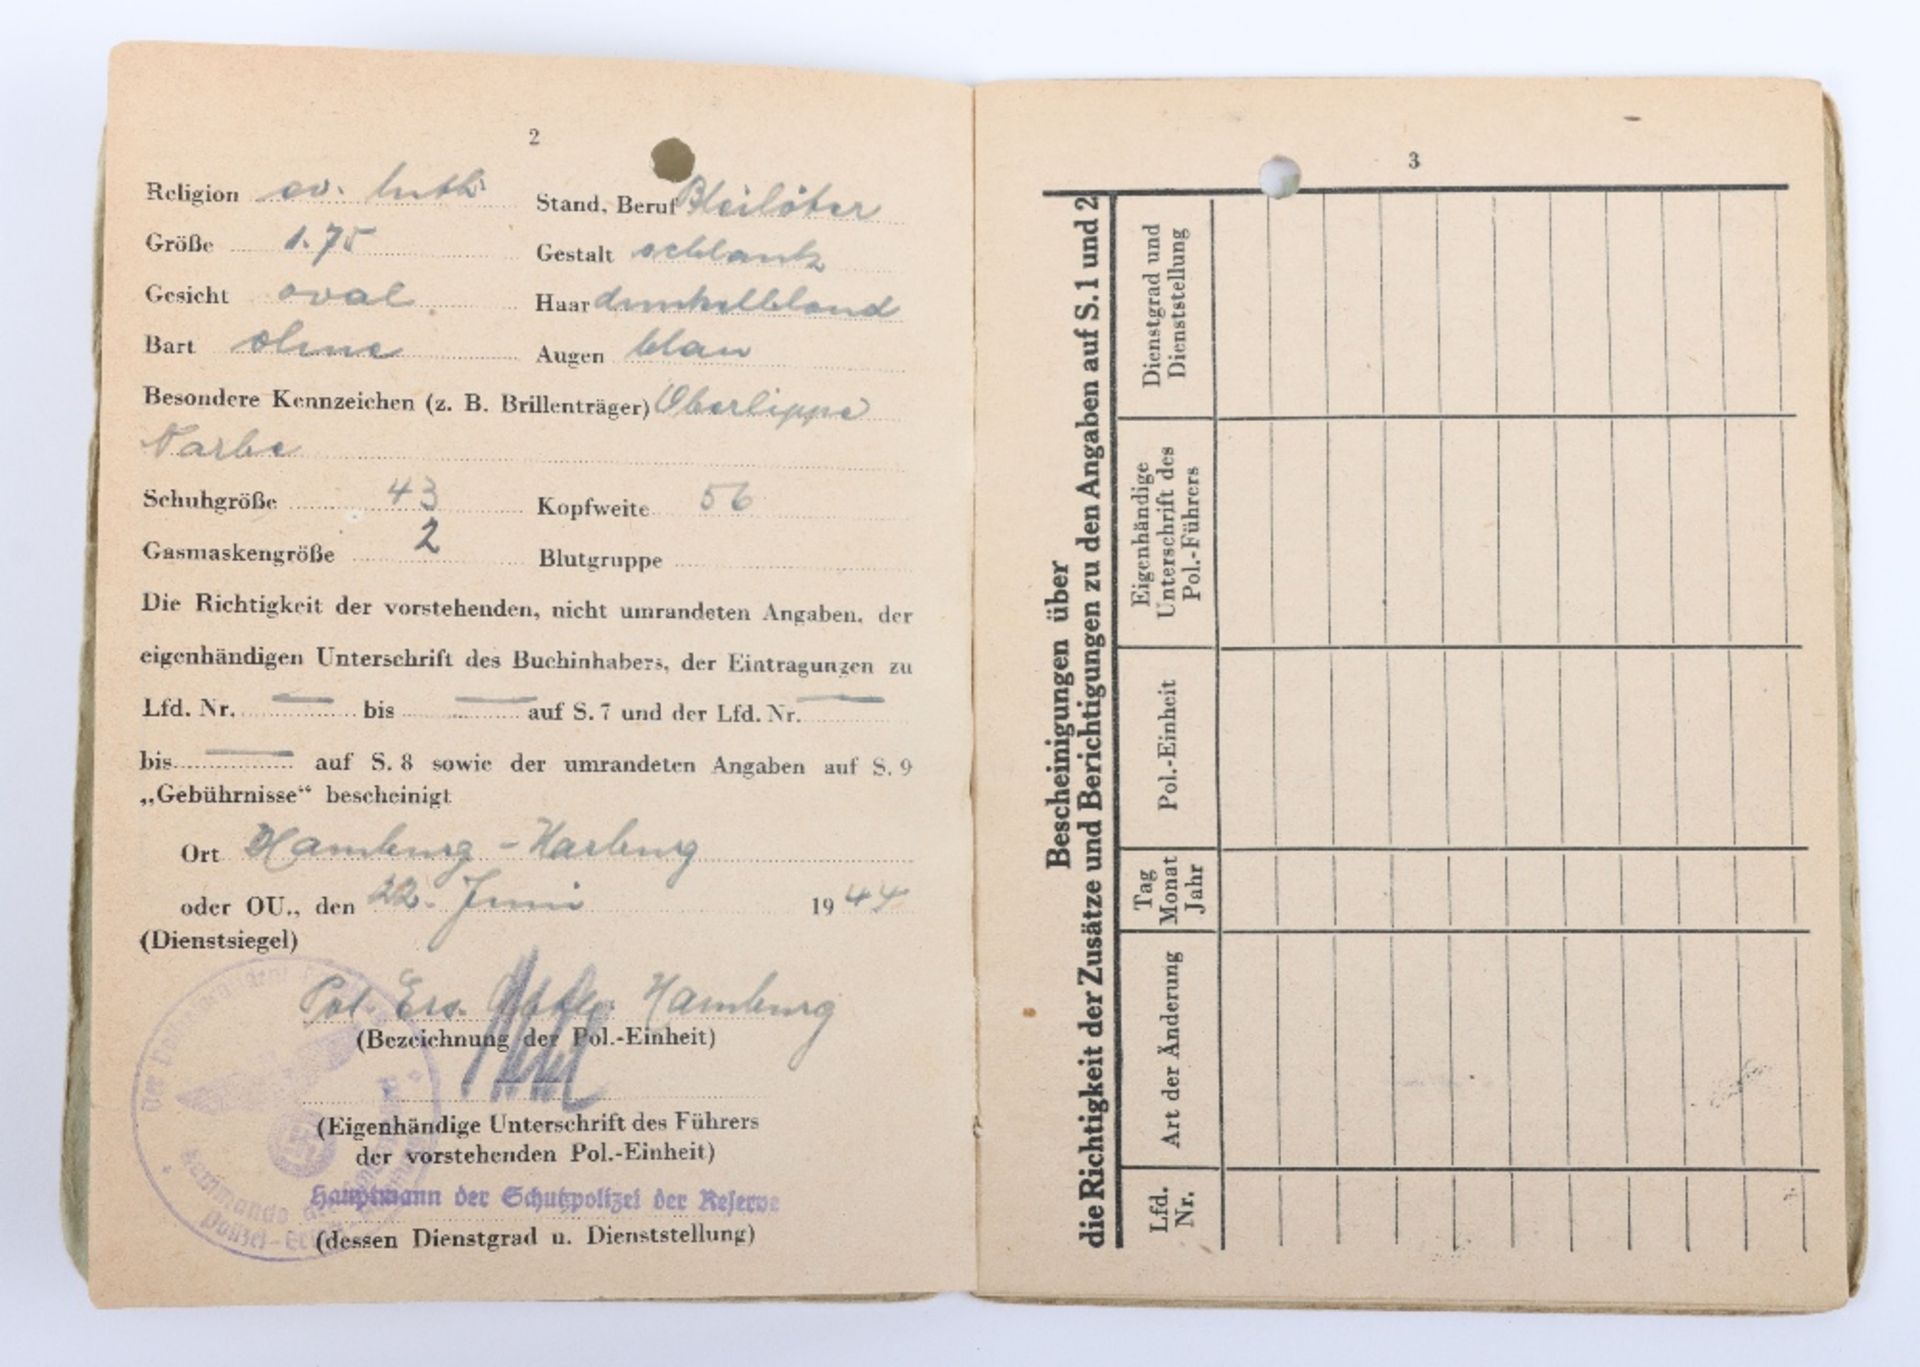 2
Religion ev. luth. Stand, Beruf Bleilöter
Größe 1.75 Gestalt schlank
Gesicht oval Haar dunkelblond
Bart ohne Augen blau
Besondere Kennzeichen (z. B. Brillenträger) Oberlippe
Narbe
Schuhgröße 43 Kopfweite 56
Gasmaskengröße 2 Blutgruppe
Die Richtigkeit der vorstehenden, nicht umrandeten Angaben, der
eigenhändigen Unterschrift des Buchinhabers, der Eintragungen zu
Lfd. Nr. — bis — auf S. 7 und der Lfd. Nr. —
bis — auf S. 8 sowie der umrandeten Angaben auf S. 9
„Gebührnisse“ bescheinigt
Ort Hamburg-Harburg
oder OU., den 22. Juni 1944
(Dienstsiegel)
Pol. Ers. Abtlg. Hamburg
(Bezeichnung der Pol.-Einheit)
(Eigenhändige Unterschrift des Führers
der vorstehenden Pol.-Einheit)
Hauptmann der Schutzpolizei der Reserve
(dessen Dienstgrad u. Dienststellung)
Kommando der
3
Bescheinigungen über
die Richtigkeit der Zusätze und Berichtigungen zu den Angaben auf S. 1 und 2
Lfd.
Nr.
Art der Änderung
Tag
Monat
Jahr
Pol.-Einheit
Eigenhändige
Unterschrift des
Pol.-Führers
Dienstgrad und
Dienststellung